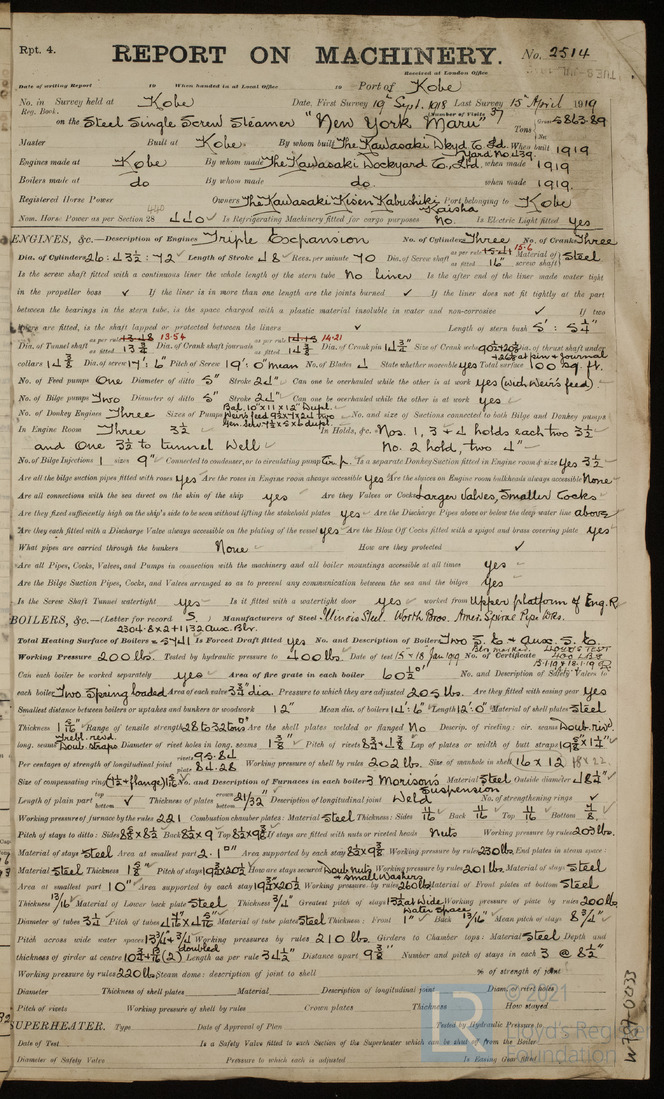 Rpt. 4.
REPORT ON MACHINERY.
No. 2514
Received at London Office
Date of writing Report 19 When handed in at Local Office 19 Port of Kobe
No. in Survey held at Kobe Date, First Survey 19th Sept. 1918 Last Survey 15th April 1919
Reg. Book. (Number of Visits 37
on the Steel Single Screw Steamer "New York Maru" Tons Gross 5863.89 Net
Master Built at Kobe By whom built The Kawasaki Dkyd Co. Ld. When built 1919
Yard No 439.
Engines made at Kobe By whom made The Kawasaki Dockyard Co., Ltd. when made 1919
Boilers made at do By whom made do. when made 1919.
Registered Horse Power Owners The Kawasaki Kisen Kabushiki Kaisha Port belonging to Kobe
Nom. Horse Power as per Section 28 440 Is Refrigerating Machinery fitted for cargo purposes No. Is Electric Light fitted Yes
ENGINES, &c.—Description of Engines Triple Expansion No. of Cylinders Three No. of Cranks Three
Dia. of Cylinders 26 : 43½ : 72 Length of Stroke 48 Revs. per minute 70 Dia. of Screw shaft as per rule as fitted 16" Material of screw shaft Steel
Is the screw shaft fitted with a continuous liner the whole length of the stern tube No liner Is the after end of the liner made water tight
in the propeller boss ✓ If the liner is in more than one length are the joints burned ✓ If the liner does not fit tightly at the part
between the bearings in the stern tube, is the space charged with a plastic material insoluble in water and non-corrosive ✓ If two
liners are fitted, is the shaft lapped or protected between the liners ✓ Length of stern bush 5' : 5¼"
Dia. of Tunnel shaft as per rule 13.54 as fitted 13¾ Dia. of Crank shaft journals as per rule 14.21 as fitted 14⅜ Dia. of Crank pin 14¾ Size of Crank webs Dia. of thrust shaft under
collars 14⅜ Dia. of screw 17' : 6" Pitch of Screw 19' : 0" mean No. of Blades 4 State whether moveable yes Total surface 100 sq. ft.
No. of Feed pumps One Diameter of ditto 5" Stroke 24" Can one be overhauled while the other is at work yes (with Weir's feed)
No. of Bilge pumps Two Diameter of ditto 5" Stroke 24" Can one be overhauled while the other is at work yes
No. of Donkey Engines Three Sizes of Pumps Bal. 10" x 11 x 12" Dupl. No. and size of Suctions connected to both Bilge and Donkey pumps
In Engine Room Three 3½ In Holds, &c. Nos. 1, 3 & 4 holds each two 3½
and One 3½ to tunnel Well No. 2 hold, two 4"
No. of Bilge Injections 1 sizes 9" Connected to condenser, or to circulating pump Cir. p. Is a separate Donkey Suction fitted in Engine room & size Yes 3½
Are all the bilge suction pipes fitted with roses yes Are the roses in Engine room always accessible yes Are the sluices on Engine room bulkheads always accessible None
Are all connections with the sea direct on the skin of the ship yes Are they Valves or Cocks Larger Valves, Smaller Cocks
Are they fixed sufficiently high on the ship's side to be seen without lifting the stokehold plates yes Are the Discharge Pipes above or below the deep water line above
Are they each fitted with a Discharge Valve always accessible on the plating of the vessel yes Are the Blow Off Cocks fitted with a spigot and brass covering plate yes
What pipes are carried through the bunkers None How are they protected ✓
Are all Pipes, Cocks, Valves, and Pumps in connection with the machinery and all boiler mountings accessible at all times yes
Are the Bilge Suction Pipes, Cocks, and Valves arranged so as to prevent any communication between the sea and the bilges yes
Is the Screw Shaft Tunnel watertight yes Is it fitted with a watertight door yes worked from Upper platform of Eng. R
BOILERS, &c.—(Letter for record S.) Manufacturers of Steel Illinois Steel. Worth Bros. Amer. Spiral Pipe Wks.
2304.8 x 2 + 1132 Aux. Blr.
Total Heating Surface of Boilers = 5741 Is Forced Draft fitted yes No. and Description of Boilers Two S. E. & Aux. S. E.
Working Pressure 200 lbs. Tested by hydraulic pressure to 400 lbs. Date of test 15 & 18 Jan 1919 No. of Certificate
Can each boiler be worked separately yes Area of fire grate in each boiler 60½ No. and Description of Safety Valves to
each boiler Two Spring loaded Area of each valve 3¾ dia. Pressure to which they are adjusted 205 lbs. Are they fitted with easing gear yes
Smallest distance between boilers or uptakes and bunkers or woodwork 12" Mean dia. of boilers 14' : 6" Length 12' : 0" Material of shell plates Steel
Thickness 1 5/16" Range of tensile strength 28 to 32 tons Are the shell plates welded or flanged No Descrip. of riveting: cir. seams Doub. riv.
long. seams Trebl. rivd. Doub. straps Diameter of rivet holes in long. seams 1⅜" Pitch of rivets Lap of plates or width of butt straps
Per centages of strength of longitudinal joint rivets plate 84.28 Working pressure of shell by rules 202 lbs. Size of manhole in shell 16 x 12
Size of compensating ring No. and Description of Furnaces in each boiler 3 Morison's Suspension Material Steel Outside diameter 48¼"
Length of plain part top bottom ✓ Thickness of plates crown bottom 21/32" Description of longitudinal joint Weld No. of strengthening rings ✓
Working pressure of furnace by the rules 221 Combustion chamber plates: Material Steel Thickness: Sides 11/16 Back 11/16 Top 11/16 Bottom ⅞
Pitch of stays to ditto: Sides Back 8½ x 9 Top 8½ x 9⅜ If stays are fitted with nuts or riveted heads Nuts Working pressure by rules 203 lbs.
Material of stays Steel Area at smallest part 2.1" Area supported by each stay 8½ x 9⅜ Working pressure by rules 230 lbs. End plates in steam space:
Material Steel Thickness 1⅛" Pitch of stays 19¾ x 20½ How are stays secured Doub. nuts & small Washers Working pressure by rules 201 lbs. Material of stays Steel
Area at smallest part 10" Area supported by each stay 19¾ x 20½ Working pressure by rules 260 lbs. Material of Front plates at bottom Steel
Thickness 13/16" Material of Lower back plate Steel Thickness ¾" Greatest pitch of stays Working pressure of plate by rules 200 lbs.
Diameter of tubes 3¼ Pitch of tubes Material of tube plates Steel Thickness: Front 1" Back 13/16" Mean pitch of stays 8¾"
Pitch across wide water spaces Working pressures by rules 210 lbs. Girders to Chamber tops: Material Steel Depth and
thickness of girder at centre Length as per rule 34½" Distance apart 9⅜" Number and pitch of stays in each 3 @ 8½"
Working pressure by rules 220 lbs. Steam dome: description of joint to shell % of strength of joint
Diameter Thickness of shell plates Material Description of longitudinal joint Diam. of rivet holes
Pitch of rivets Working pressure of shell by rules Crown plates Thickness How stayed
SUPERHEATER. Type Date of Approval of Plan Tested by Hydraulic Pressure to
Date of Test Is a Safety Valve fitted to each Section of the Superheater which can be shut off from the Boiler
Diameter of Safety Valve Pressure to which each is adjusted Is Easing Gear fitted
© 2021
LR
Lloyd's Register
Foundation
W787-0033